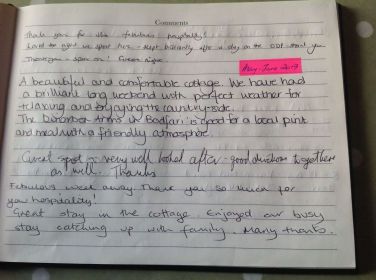 Comments
Thank you for the fabulous hospitality!
Loved the night we spent here - slept brilliantly after a day on the ODP. Thank you
Thank you - spot on! Great night
May - June 2013
A beautiful and comfortable cottage. We have had
a brilliant long weekend with perfect weather for
relaxing and enjoying the country-side.
The Arms in Bodfari is good for a local pint
and meal with a friendly atmosphere.
Great spot - very well looked after - good directions to get here
as well. Thanks
Fabulous week away. Thank you so much for
your hospitality!
Great stay in the cottage. Enjoyed our busy
stay catching up with family. Many thanks.